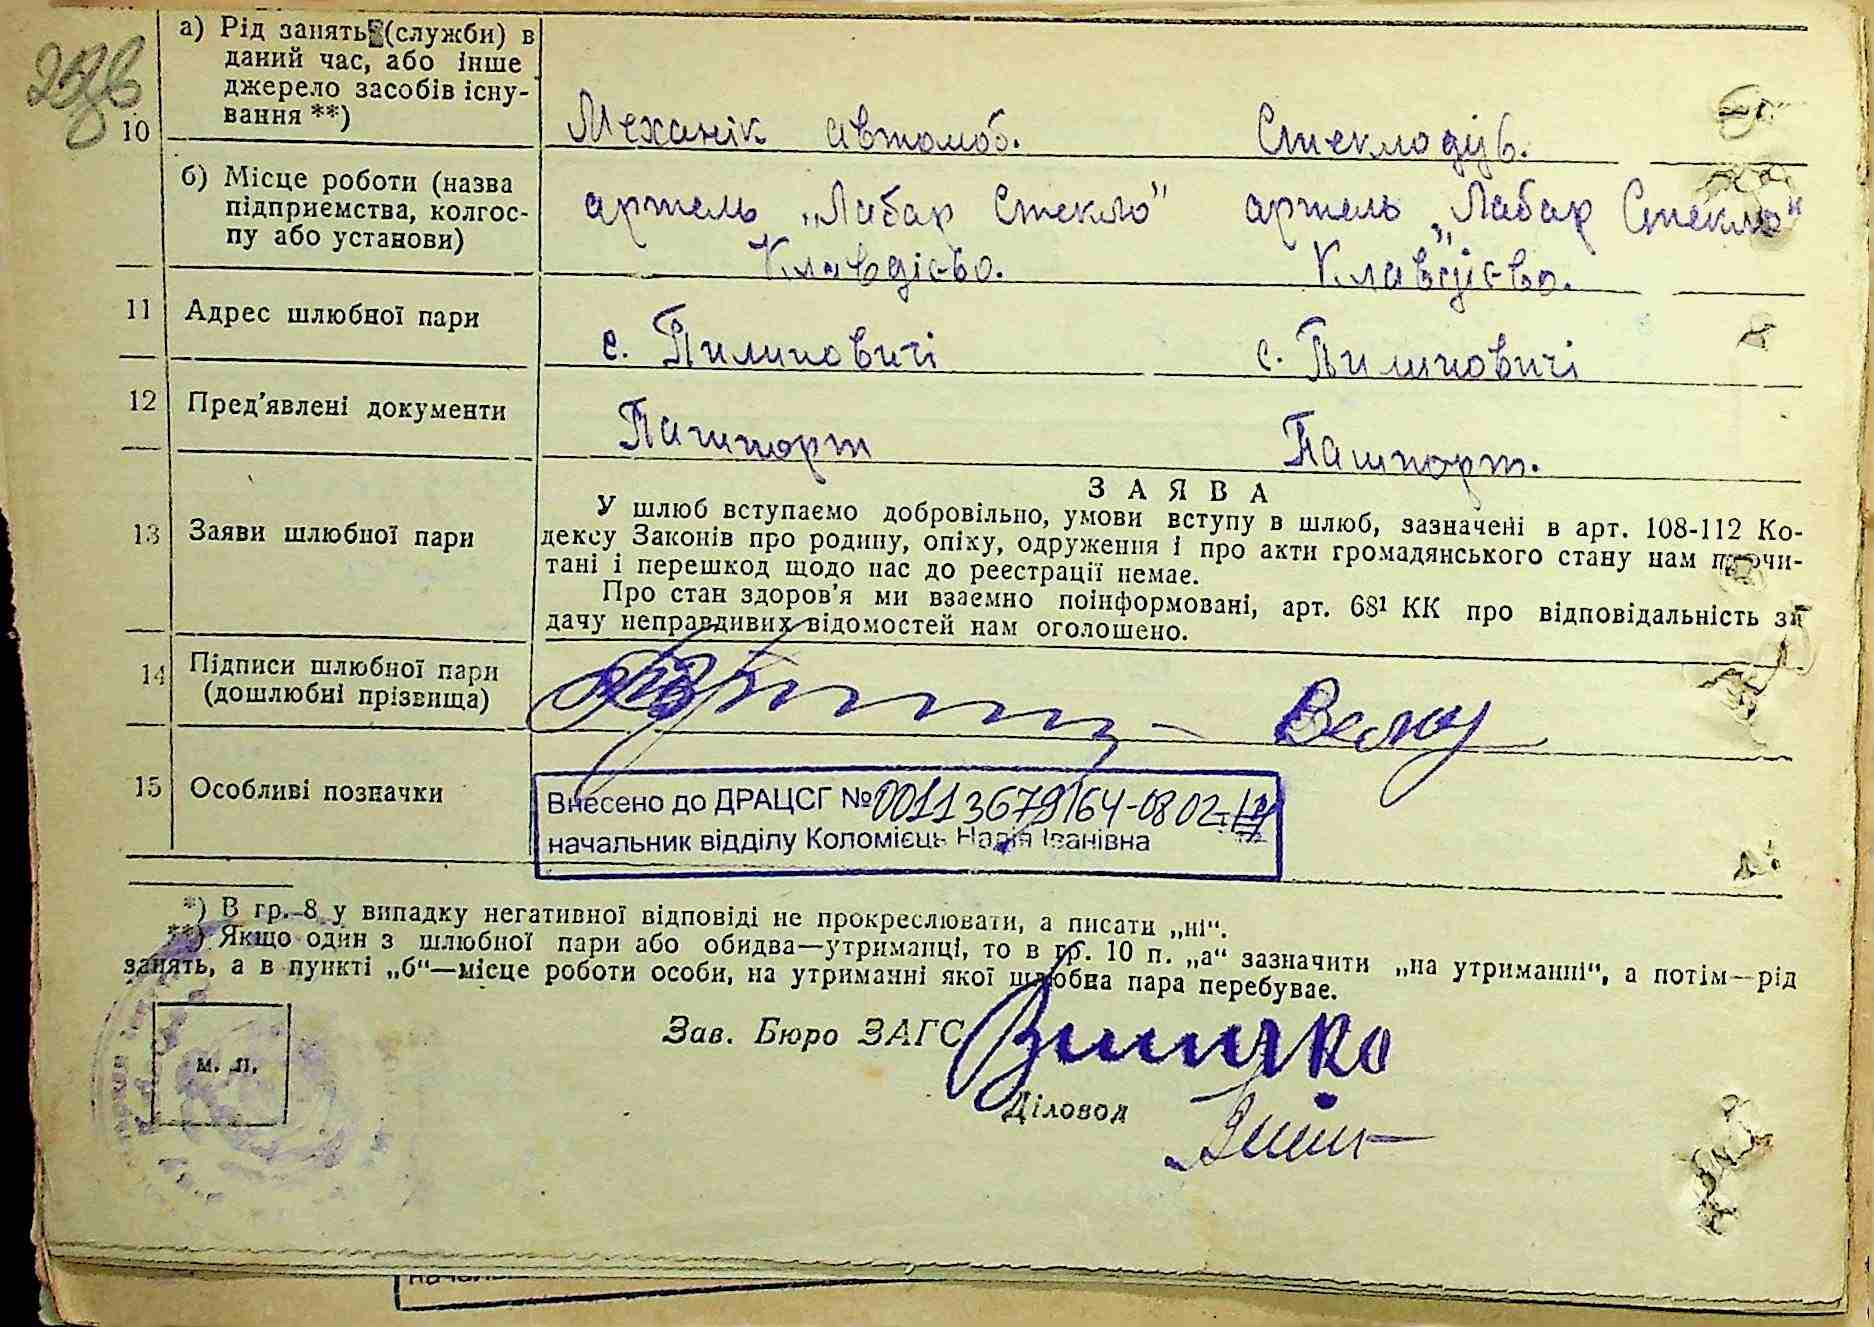 10
а) Рід занять (служби) в
даний час, або інше
джерело засобів існу-
вання **)
Механік автомоб. Стеклодув.
б) Місце роботи (назва
підприємства, колгос-
пу або установи)
артель „Лабор Стекло" артель „Лабор Стекло"
Клавдієво. Клавдієво.
11 Адрес шлюбної пари
с. Пилиповичі с. Пилиповичі
12 Пред'явлені документи
Пашпорт Пашпорт.
13 Заяви шлюбної пари
ЗАЯВА
У шлюб вступаємо добровільно, умови вступу в шлюб, зазначені в арт. 108-112 Ко-
дексу Законів про родину, опіку, одруження і про акти громадянського стану нам прочи-
тані і перешкод щодо нас до реєстрації немає.
Про стан здоров'я ми взаємно поінформовані, арт. 68¹ КК про відповідальність за
дачу неправдивих відомостей нам оголошено.
14 Підписи шлюбної пари
(дошлюбні прізвища)
15 Особливі позначки
Внесено до ДРАЦСГ № 00113679164-0802
начальник відділу Коломієць Надія Іванівна
*) В гр. 8 у випадку негативної відповіді не прокреслювати, а писати „ні".
**) Якщо один з шлюбної пари або обидва—утриманці, то в гр. 10 п. „а" зазначити „на утриманні", а потім—рід
занять, а в пункті „б"—місце роботи особи, на утриманні якої шлюбна пара перебуває.
м. п.
Зав. Бюро ЗАГС
Діловод